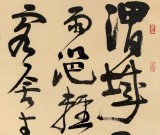 渭城
雨浥輕
客舍青